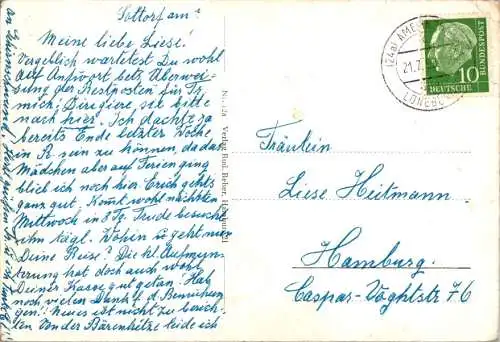 Sottorf am
Meine liebe Liese!
Vergeblich wartetest Du wohl
auf Antwort betr. Überwei-
sung der Restposten für Fr.
mich. Dirigiere sie bitte
nach hier. Ich dachte ja
bereits Ende letzter Woche
in R. sein zu können, da das
Mädchen aber auf Ferien ging
blieb ich noch hier. Erich gehts
ganz gut. Kommt wohl nächsten
Mittwoch in Trude besucht
ihn tägl. Wohin geht nun
Deine Reise? Die kl. Aufmun-
terung hat doch auch wohl
Deiner Kasse gut getan. Hab
noch vielen Dank f. d. Bemühun-
gen. Neues ist nicht zu berich-
ten. Von der Bärenhitze leide ich
Verlag Rud. Reher, Hamburg
21.7.
LÜNEB
10
DEUTSCHE
BUNDESPOST
Fräulein
Liese Heitmann
Hamburg
Caspar-Voghtstr 76